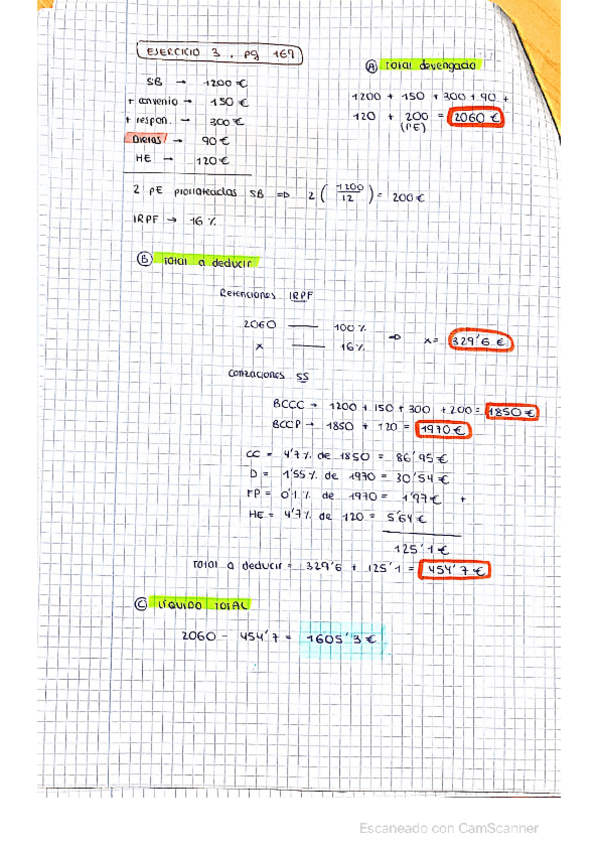 EJERCICIO 3, pg 169
SB → 1200 €
+ convenio → 150 €
+ respon. → 300 €
Dietas → 90 €
HE → 120 €
2 PE prorrateadas SB => 2 (1200/12) = 200 €
IRPF → 16 %
A Total devengado
1200 + 150 + 300 + 90 +
120 + 200 = 2060 €
(PE)
B Total a deducir
Retenciones IRPF
2060 —— 100 %
x —— 16 % => x = 329'6 €
Cotizaciones SS
BCCC → 1200 + 150 + 300 + 200 = 1850 €
BCCP → 1850 + 120 = 1970 €
CC = 4'7 % de 1850 = 86'95 €
D = 1'55 % de 1970 = 30'54 €
FP = 0'1 % de 1970 = 1'97 € +
HE = 4'7 % de 120 = 5'64 €
125'1 €
Total a deducir = 329'6 + 125'1 = 454'7 €
C LÍQUIDO TOTAL
2060 - 454'7 = 1605'3 €
Escaneado con CamScanner